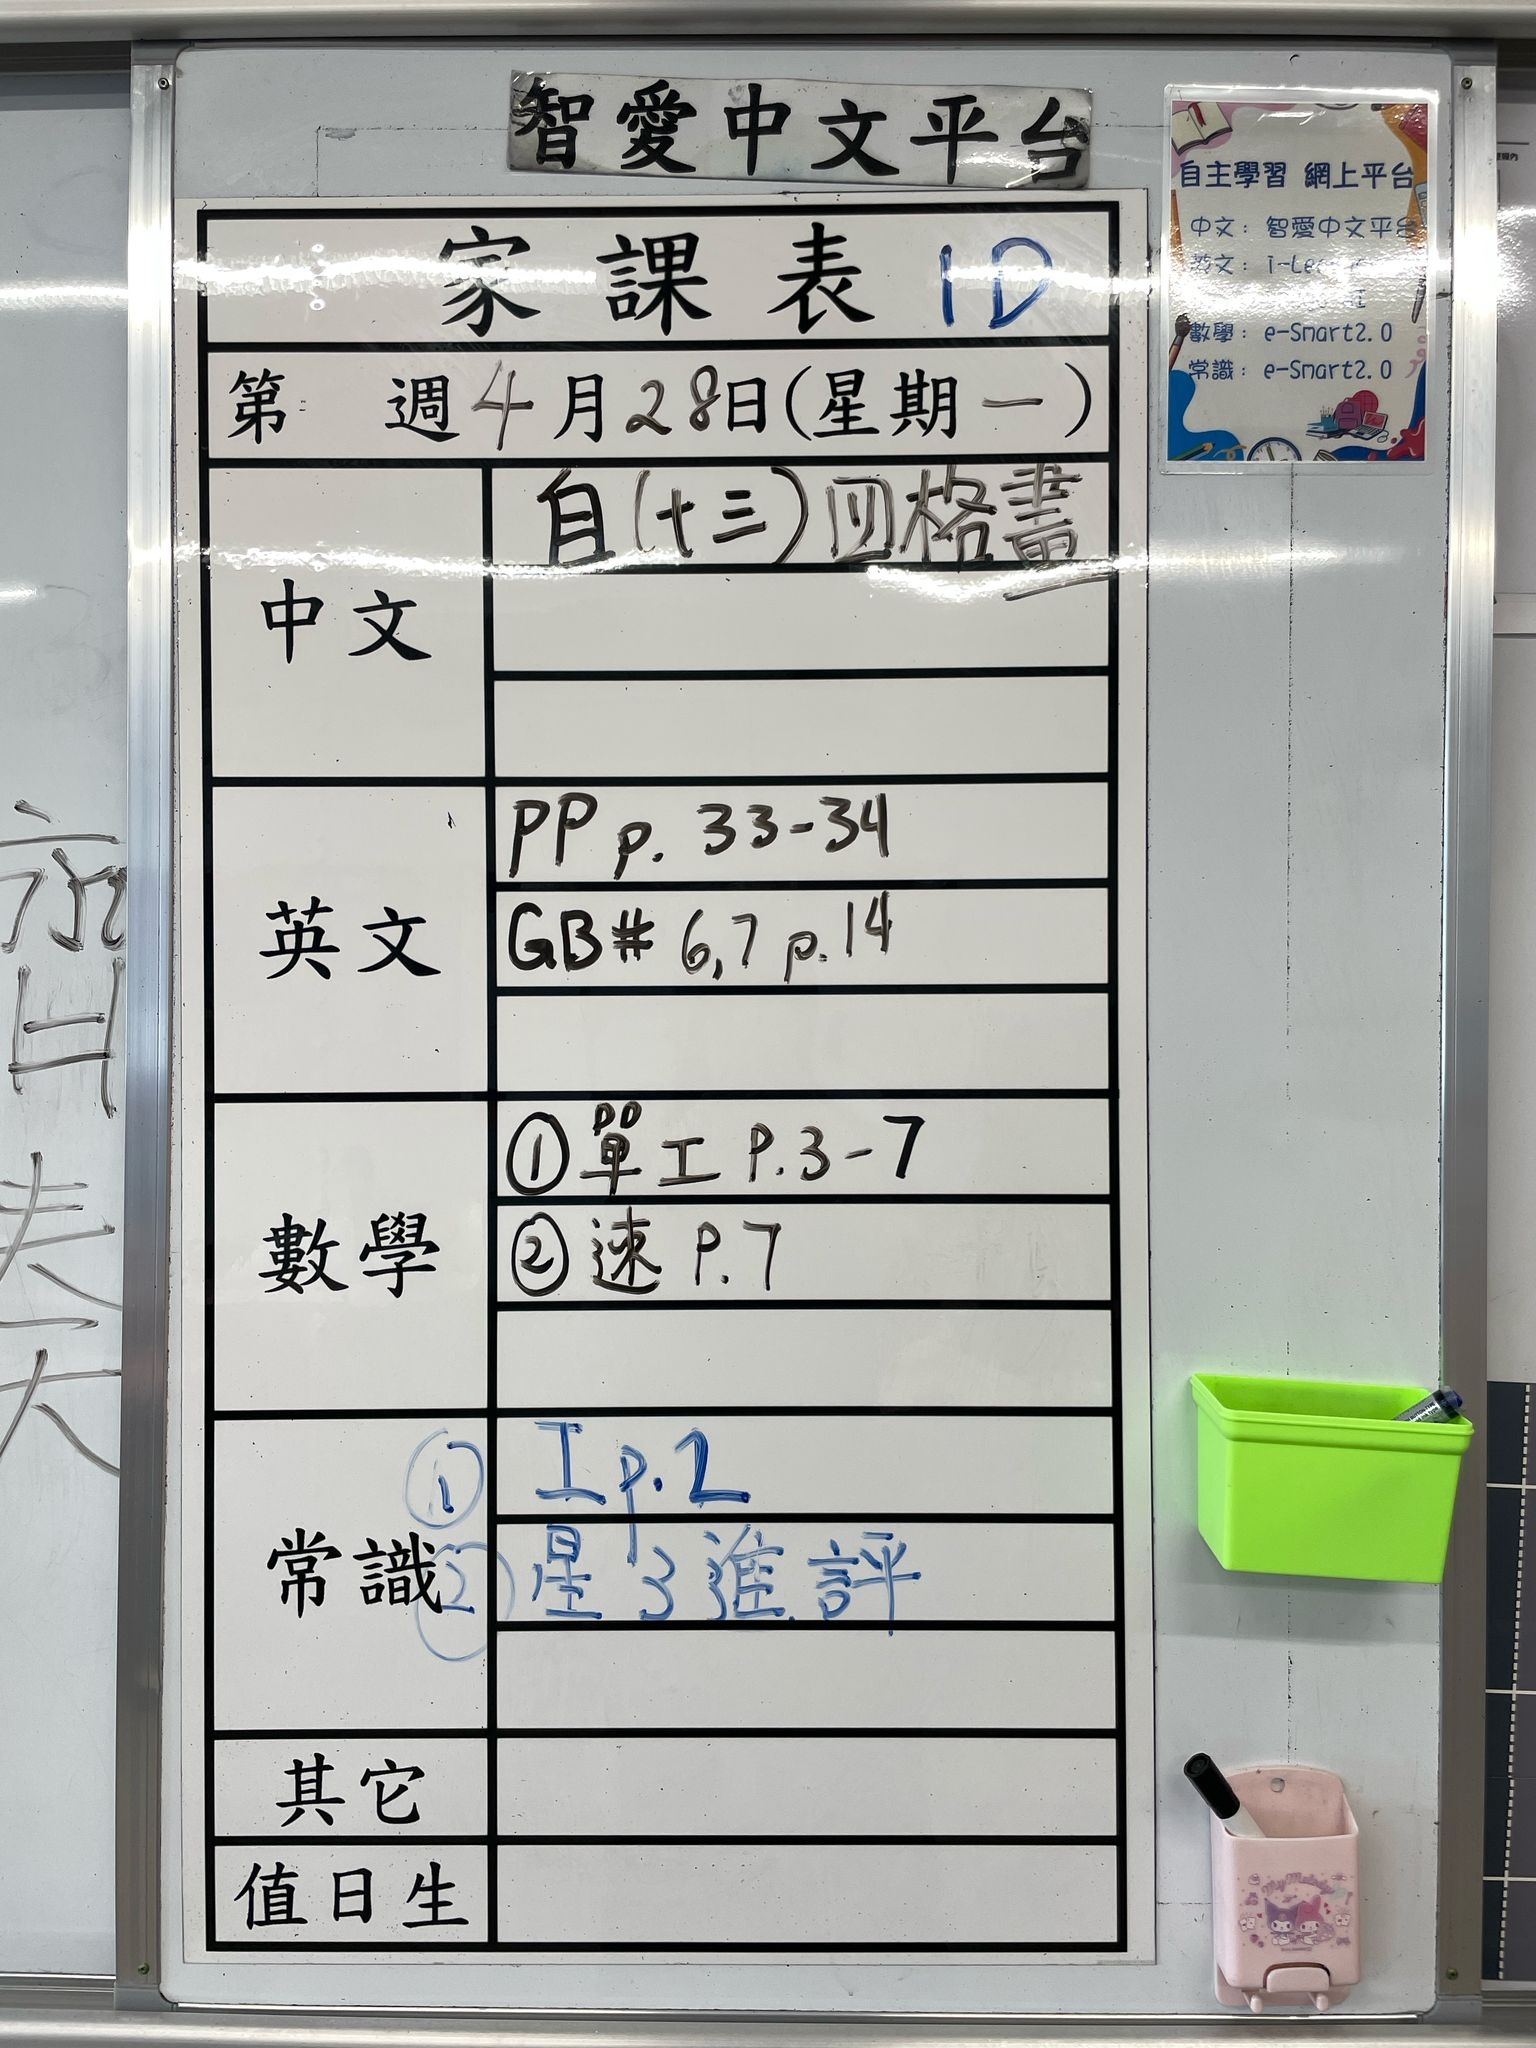 智愛中文平台
自主學習 網上平台
中文: 智愛中文平台
英文: i-Le
數學: e-Smart2.0
常識: e-Smart2.0
家課表 1D
第 週 4月28日(星期一)
中文
自(十三)四格畫
英文
PP p. 33-34
GB# 6,7 p.14
數學
① 單工 P.3-7
② 速 P.7
常識
① 工 p.2
② 星3進評
其它
值日生
My Melody